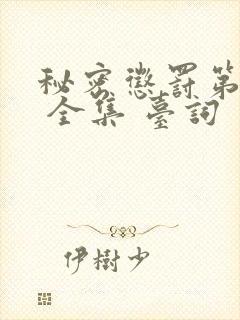 秘密懲罰第
全集 臺詞
伊樹少